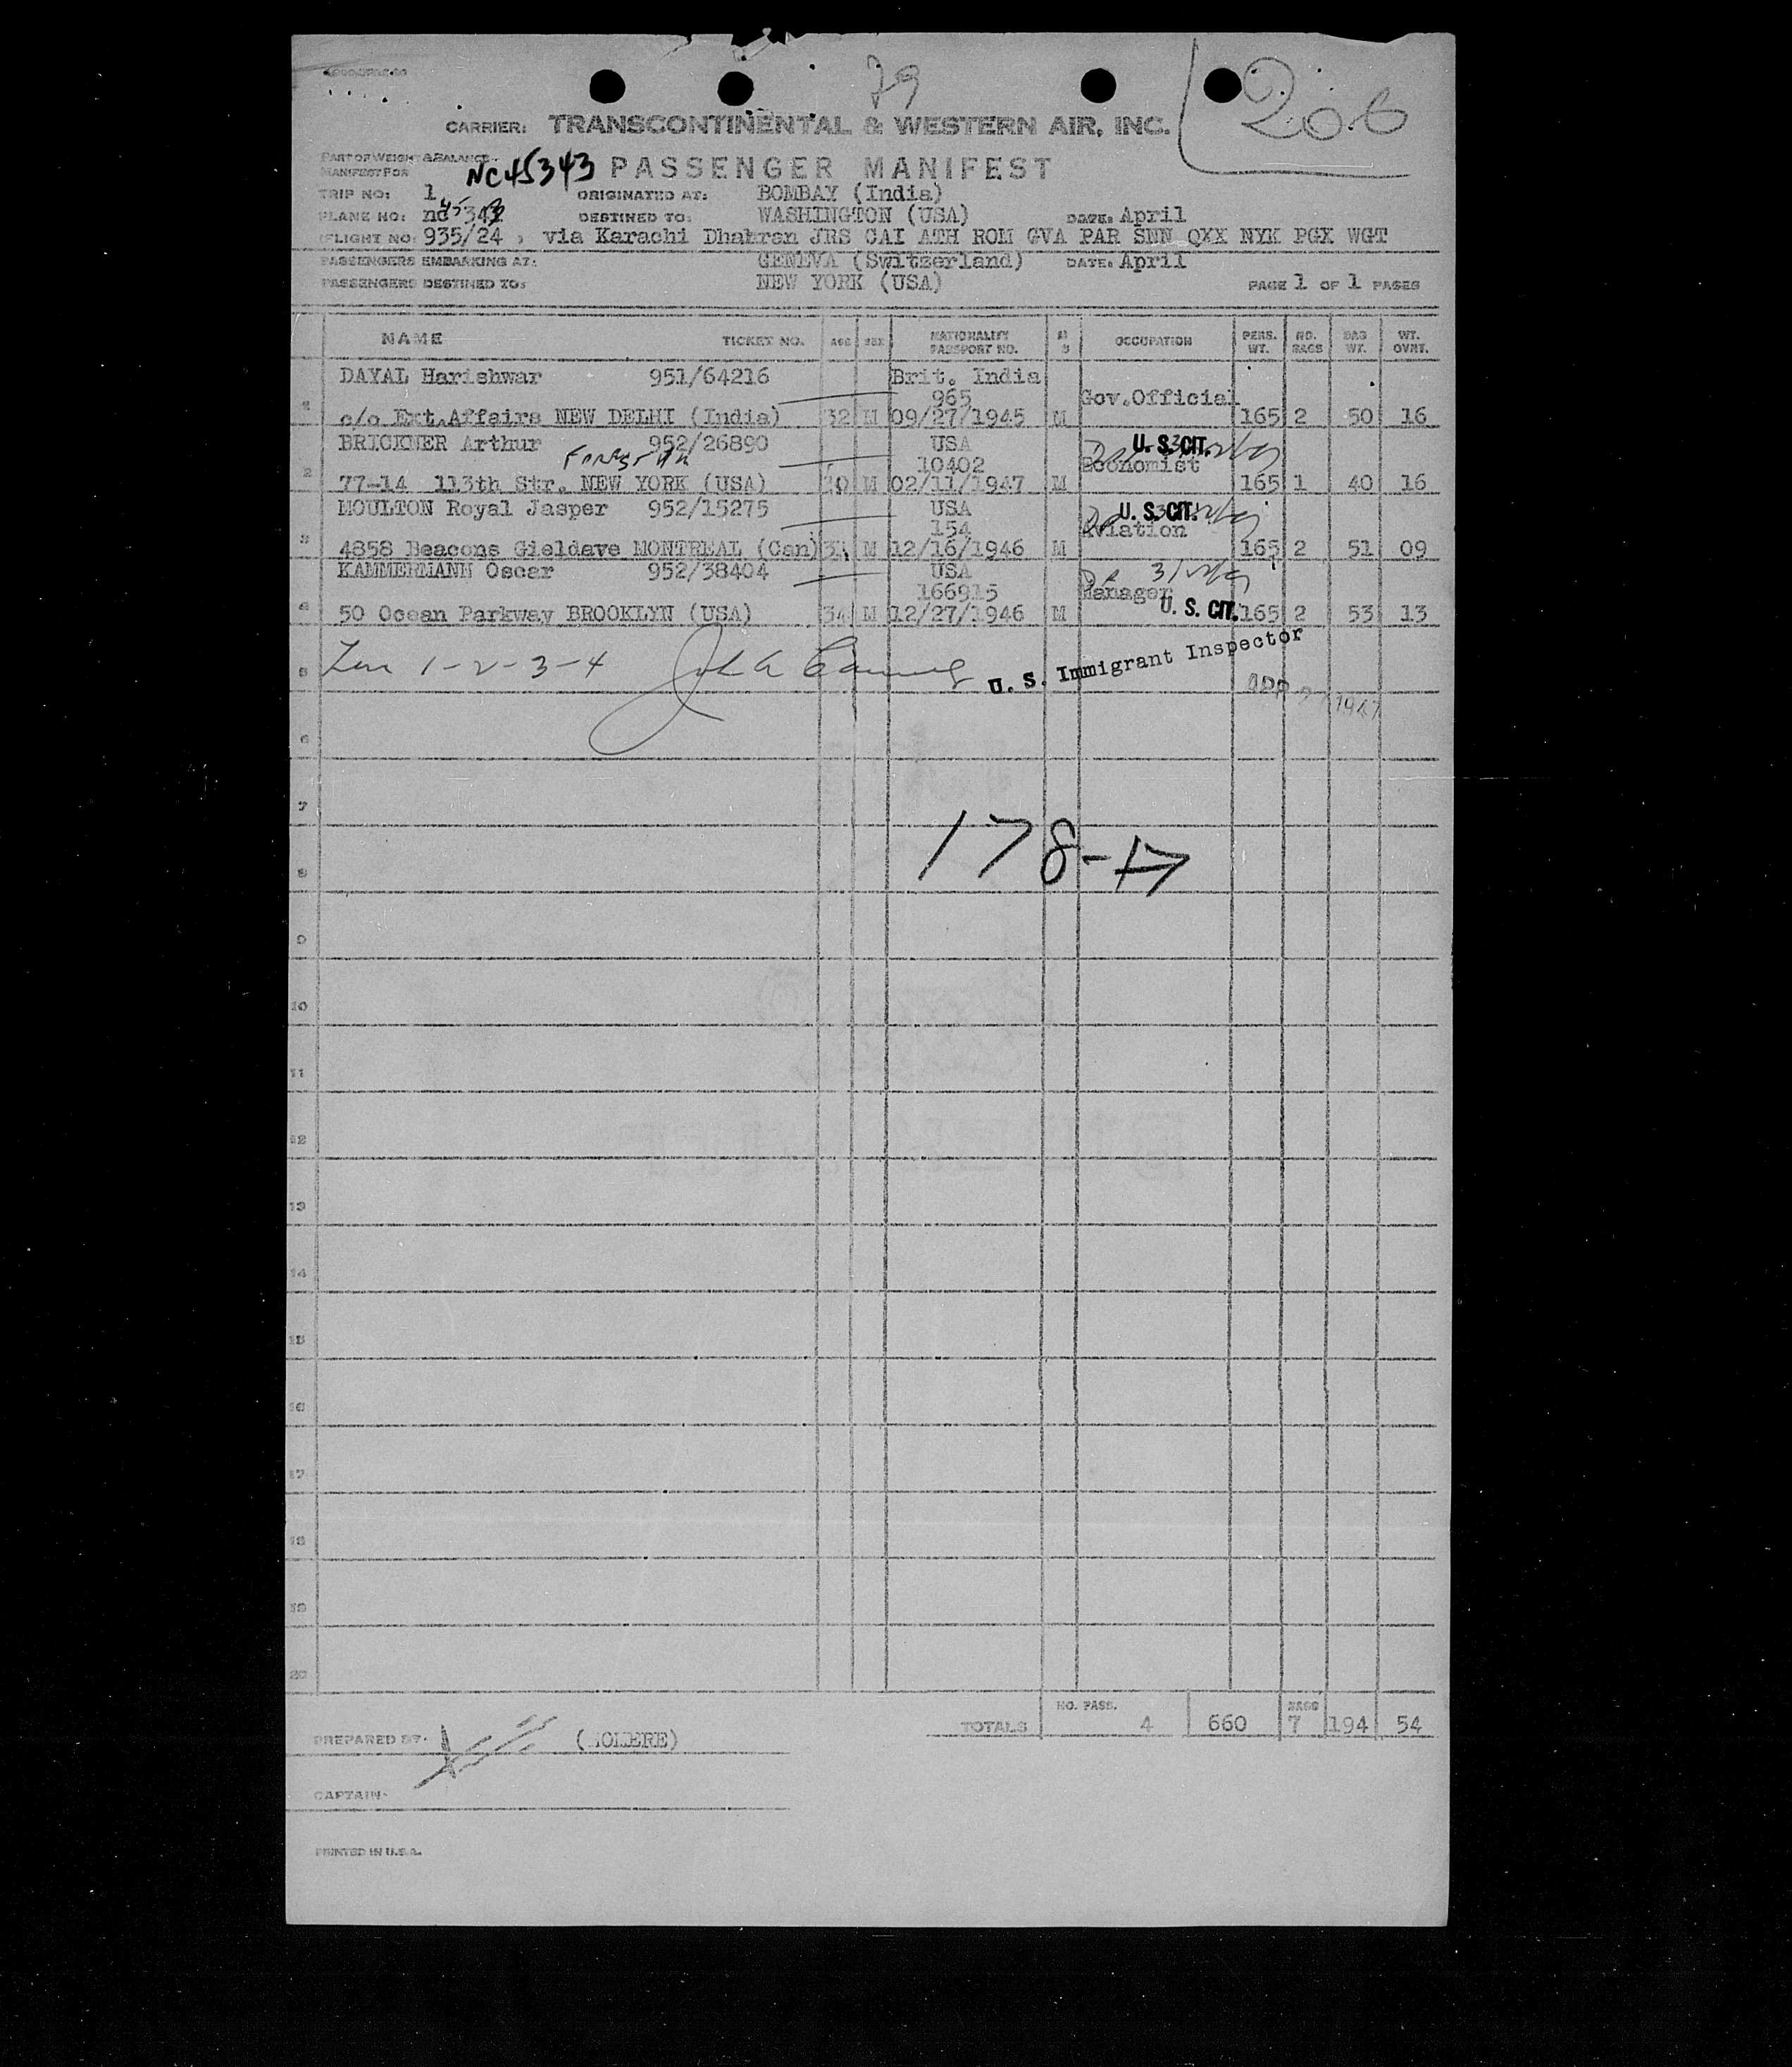 79
206
CARRIER: TRANSCONTINENTAL & WESTERN AIR, INC.
PART OF WEIGHT & BALANCE
MANIFEST FOR
NC45343 PASSENGER MANIFEST
TRIP NO: 1 ORIGINATED AT: BOMBAY (India)
PLANE NO: DESTINED TO: WASHINGTON (USA) DATE: April
FLIGHT NO: 935/24 , via Karachi Dhahran JRS CAI ATH ROM GVA PAR SNN QXX NYK PGX WGT
PASSENGERS EMBARKING AT: GENEVA (Switzerland) DATE: April
PASSENGERS DESTINED TO: NEW YORK (USA) PAGE 1 OF 1 PAGES
NAME TICKET NO. AGE SEX NATIONALITY PASSPORT NO. M S OCCUPATION PERS. WT. NO. BAGS BAG WT. WT. OVRT.
DAYAL Harishwar 951/64216 Brit. India
965 Gov.Official
1 c/o Ext.Affairs NEW DELHI (India) 32 M 09/27/1945 M 165 2 50 16
BRICKNER Arthur 952/26890 USA U. S. CIT.
10402 Economist
2 77-14 113th Str. NEW YORK (USA) M 02/11/1947 M 165 1 40 16
MOULTON Royal Jasper 952/15275 USA U. S. CIT.
154 Aviation
3 4858 Beacons Gieldave MONTREAL (Can) M 12/16/1946 M 165 2 51 09
KAMMERMANN Oscar 952/38404 USA
166915 Manager
4 50 Ocean Parkway BROOKLYN (USA) 34 M 12/27/1946 M U. S. CIT. 165 2 53 13
5 1-2-3-4 U. S. Immigrant Inspector
APR 1947
6
7
178-17
8
9
10
11
12
13
14
15
16
17
18
19
20
TOTALS NO. PASS. 4 660 BAGS 7 194 54
PREPARED BY.
CAPTAIN.
PRINTED IN U.S.A.